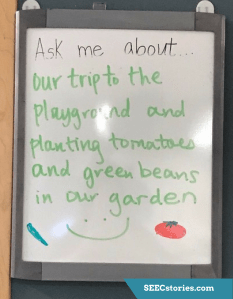 Ask me about...
our trip to the
playground and
planting tomatoes
and green beans
in our garden
SEECstories.com